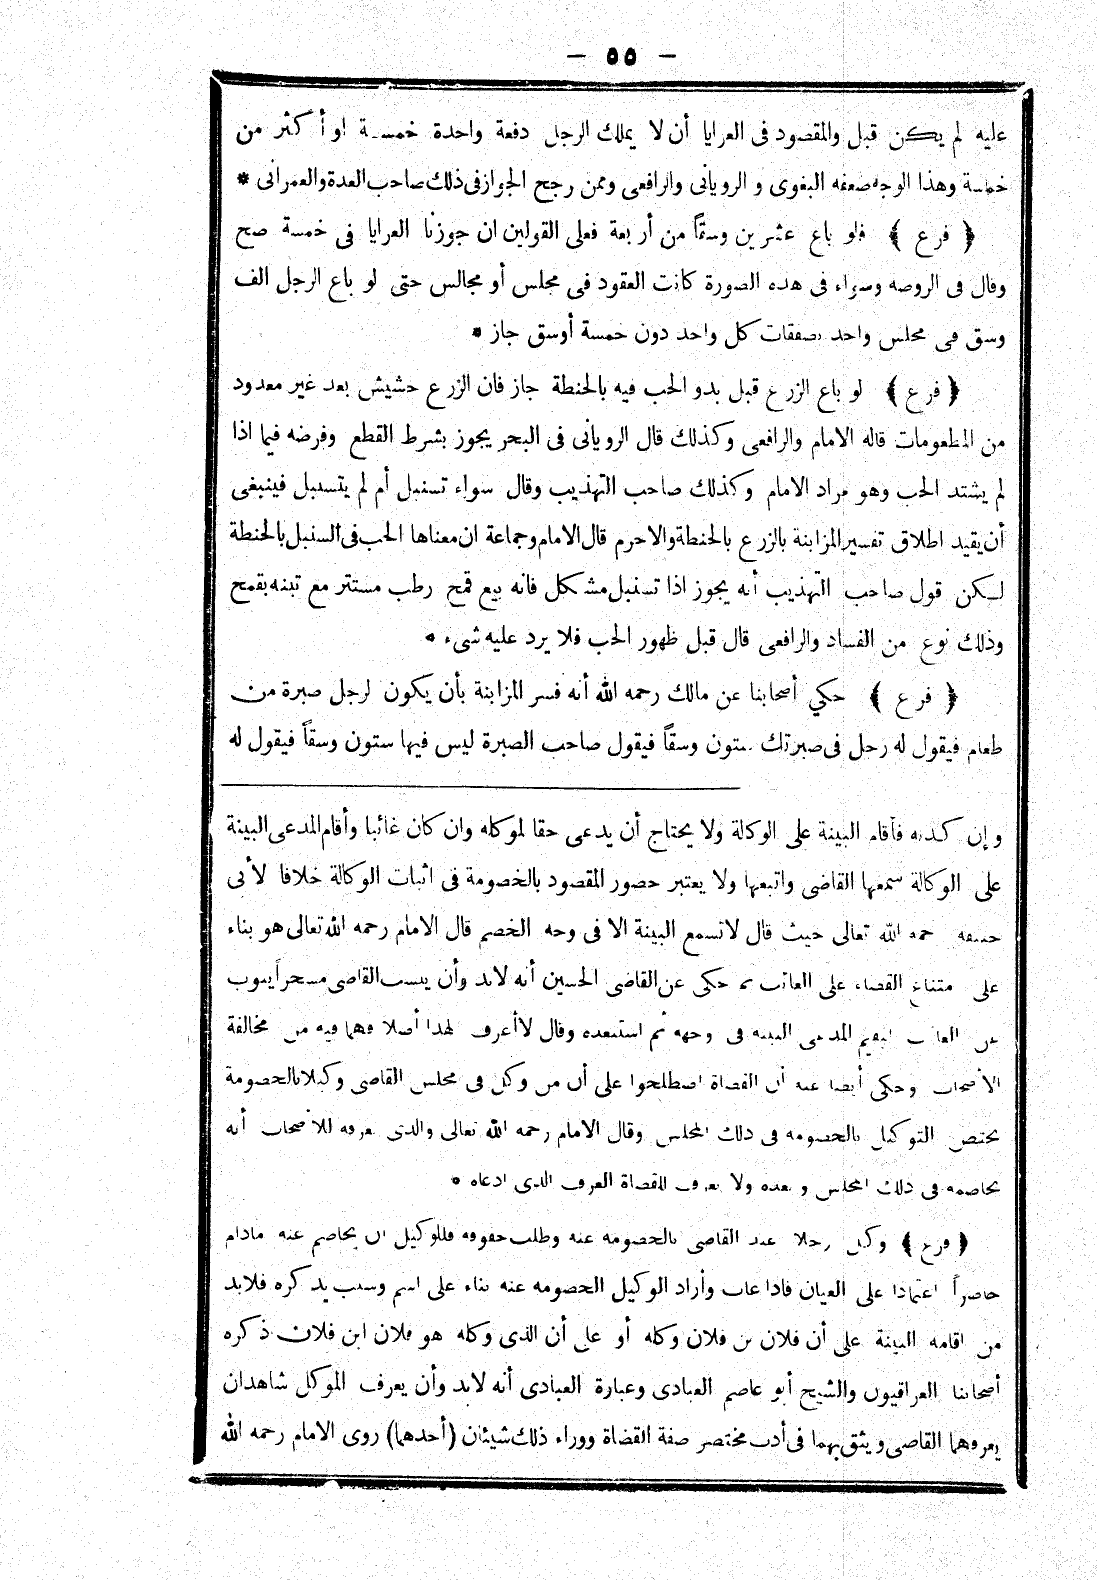 — ٥٥ —
عليه لم يكن قبل والمقصود فى العرايا أن لا يملك الرجل دفعة واحدة خمسة او أكثر من
خمسة وهذا الوجه ضعفه البغوى و الرويانى والرافعى وممن رجح الجواز فى ذلك صاحب العدة والعمرانى *
﴿ فرع ﴾ فلو باع عشرين وسقاً من أربعة فعلى القولين ان جوزنا العرايا فى خمسة صح
وقال فى الروضة وسواء فى هذه الصورة كانت العقود فى مجلس أو مجالس حتى لو باع الرجل الف
وسق فى مجلس واحد بصفقات كل واحد دون خمسة أوسق جاز *
﴿ فرع ﴾ لو باع الزرع قبل بدو الحب فيه بالحنطة جاز فان الزرع حشيش بعد غير معدود
من المطعومات قاله الامام والرافعى وكذلك قال الرويانى فى البحر يجوز بشرط القطع وفرضه فيما اذا
لم يشتد الحب وهو مراد الامام وكذلك صاحب التهذيب وقال سواء تسنبل أم لم يتسنبل فينبغى
أن يقيد اطلاق تفسير المزابنة بالزرع بالحنطة والاحرم قال الامام وجماعة ان معناها الحب فى السنبل بالحنطة
لكن قول صاحب التهذيب أنه يجوز اذا تسنبل مشكل فانه بيع قمح رطب مستتر مع تبنه بقمح
وذلك نوع من الفساد والرافعى قال قبل ظهور الحب فلا يرد عليه شىء *
﴿ فرع ﴾ حكي أصحابنا عن مالك رحمه الله أنه فسر المزابنة بأن يكون لرجل صبرة من
طعام فيقول له رجل فى صبرتك ستون وسقاً فيقول صاحب الصبرة ليس فيها ستون وسقاً فيقول له
وإن كذبه فأقام البينة على الوكالة ولا يحتاج أن يدعى حقا لموكله وان كان غائبا وأقام المدعى البينة
على الوكالة سمعها القاضى واتبعها ولا يعتبر حضور المقصود بالخصومة فى اثبات الوكالة خلافا لأبى
حنيفة رحمه الله تعالى حيث قال لا تسمع البينة الا فى وجه الخصم قال الامام رحمه الله تعالى هو بناء
على امتناع القضاء على الغائب ثم حكى عن القاضى الحسين أنه لابد وأن ينصب القاضى مسخراً ينوب
عن الغائب ليقيم المدعى البينة فى وجهه ثم استبعده وقال لا أعرف لهذا أصلا فهما فيه من مخالفة
الأصحاب وحكى أيضا عنه أن القضاة اصطلحوا على أن من وكل فى مجلس القاضى وكيلا بالخصومة
يختص التوكيل بالخصومة فى ذلك المجلس وقال الامام رحمه الله تعالى والذى نعرفه للأصحاب أنه
يخاصمه فى ذلك المجلس وبعده ولا نعرف للقضاة العرف الذى ادعاه *
﴿ فرع ﴾ وكل رجلا عند القاضى بالخصومة عنه وطلب حقوقه فللوكيل ان يخاصم عنه مادام
حاضراً اعتمادا على العيان فاذا غاب وأراد الوكيل الخصومة عنه بناء على اسم ونسب يذكره فلابد
من اقامة البينة على أن فلان بن فلان وكله أو على أن الذى وكله هو فلان ابن فلان ذكره
أصحابنا العراقيون والشيخ أبو عاصم العبادى وعبارة العبادى أنه لابد وأن يعرف الموكل شاهدان
يعرفهما القاضى ويثق بهما فى أدب مختصر صفة القضاة ووراء ذلك شيئان (أحدهما) روى الامام رحمه الله